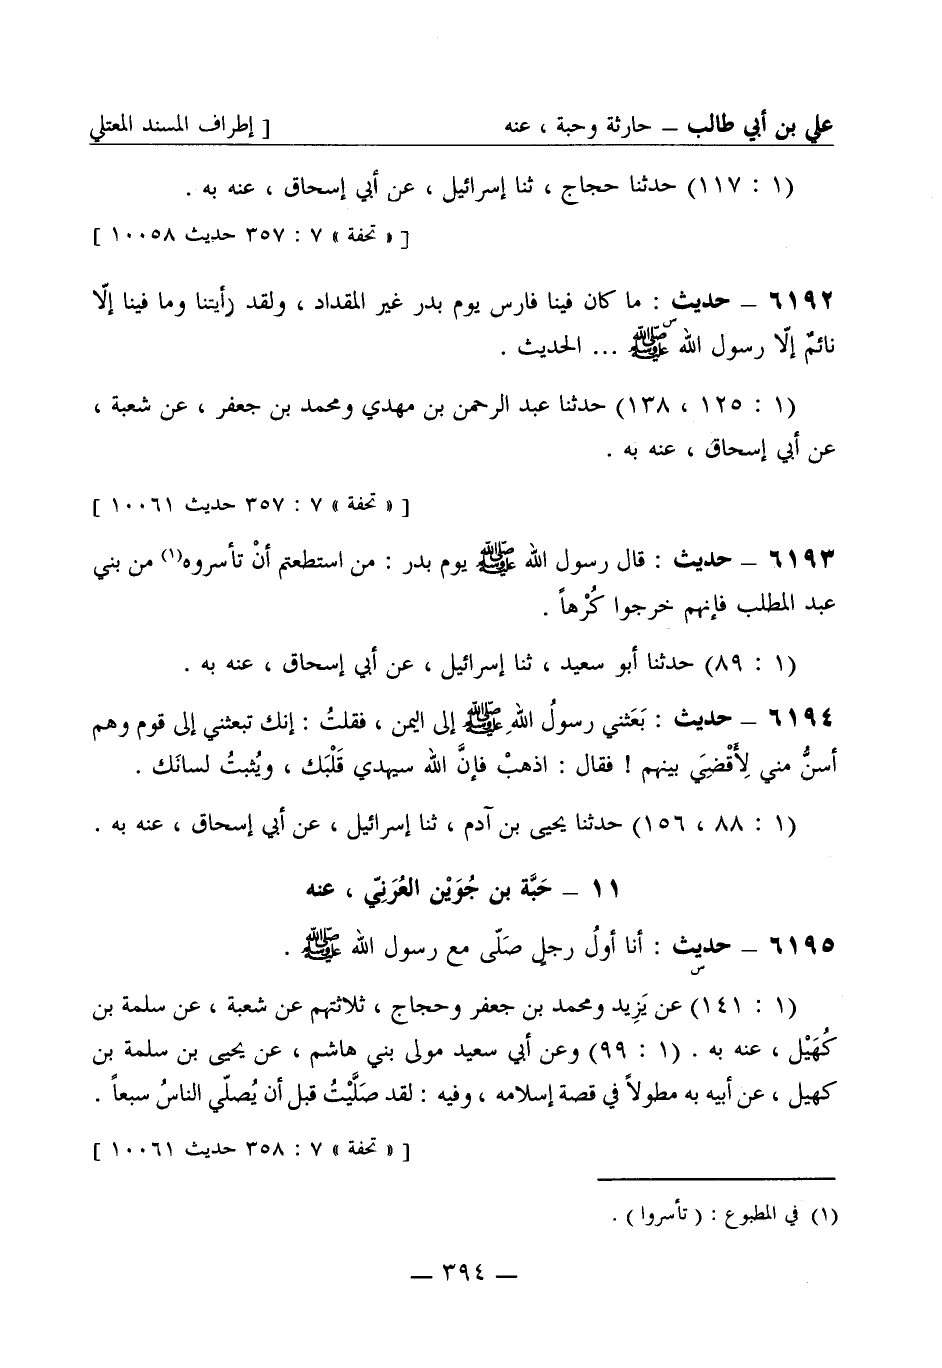 علي بن أبي طالب – حارثة وحبة ، عنه [ إطراف المسند المعتلي
(١ : ١١٧) حدثنا حجاج ، ثنا إسرائيل ، عن أبي إسحاق ، عنه به .
[ « تحفة » ٧ : ٣٥٧ حديث ١٠٠٥٨ ]
٦١٩٢ – حديث : ما كان فينا فارس يوم بدر غير المقداد ، ولقد رأيتنا وما فينا إلّا
س
نائمٌ إلّا رسول الله ﷺ ... الحديث .
(١ : ١٢٥ ، ١٣٨) حدثنا عبد الرحمن بن مهدي ومحمد بن جعفر ، عن شعبة ،
عن أبي إسحاق ، عنه به .
[ « تحفة » ٧ : ٣٥٧ حديث ١٠٠٦١ ]
٦١٩٣ – حديث : قال رسول الله ﷺ يوم بدر : من استطعتم أنْ تأسروه(١) من بني
عبد المطلب فإنهم خرجوا كُرْهاً .
(١ : ٨٩) حدثنا أبو سعيد ، ثنا إسرائيل ، عن أبي إسحاق ، عنه به .
٦١٩٤ – حديث : بَعَثني رسولُ اللهِ ﷺ إلى اليمن ، فقلتُ : إنك تبعثني إلى قوم وهم
أسنُّ مني لِأَقْضِيَ بينهم ! فقال : اذهبْ فإنَّ الله سيهدي قَلْبَك ، ويُثبتُ لسانَك .
(١ : ٨٨ ، ١٥٦) حدثنا يحيى بن آدم ، ثنا إسرائيل ، عن أبي إسحاق ، عنه به .
١١ – حَبَّة بن جُوَيْن العُرَنِيّ ، عنه
٦١٩٥ – حديث : أنا أولُ رجلٍ صَلّى مع رسول الله ﷺ .
س
(١ : ١٤١) عن يَزِيد ومحمد بن جعفر وحجاج ، ثلاثتهم عن شعبة ، عن سلمة بن
كُهَيْل ، عنه به . (١ : ٩٩) وعن أبي سعيد مولى بني هاشم ، عن يحيى بن سلمة بن
كهيل ، عن أبيه به مطولاً في قصة إسلامه ، وفيه : لقد صَلَّيْتُ قبل أن يُصلّي الناسُ سبعاً .
[ « تحفة » ٧ : ٣٥٨ حديث ١٠٠٦١ ]
(١) في المطبوع : ( تأسروا ) .
– ٣٩٤ –